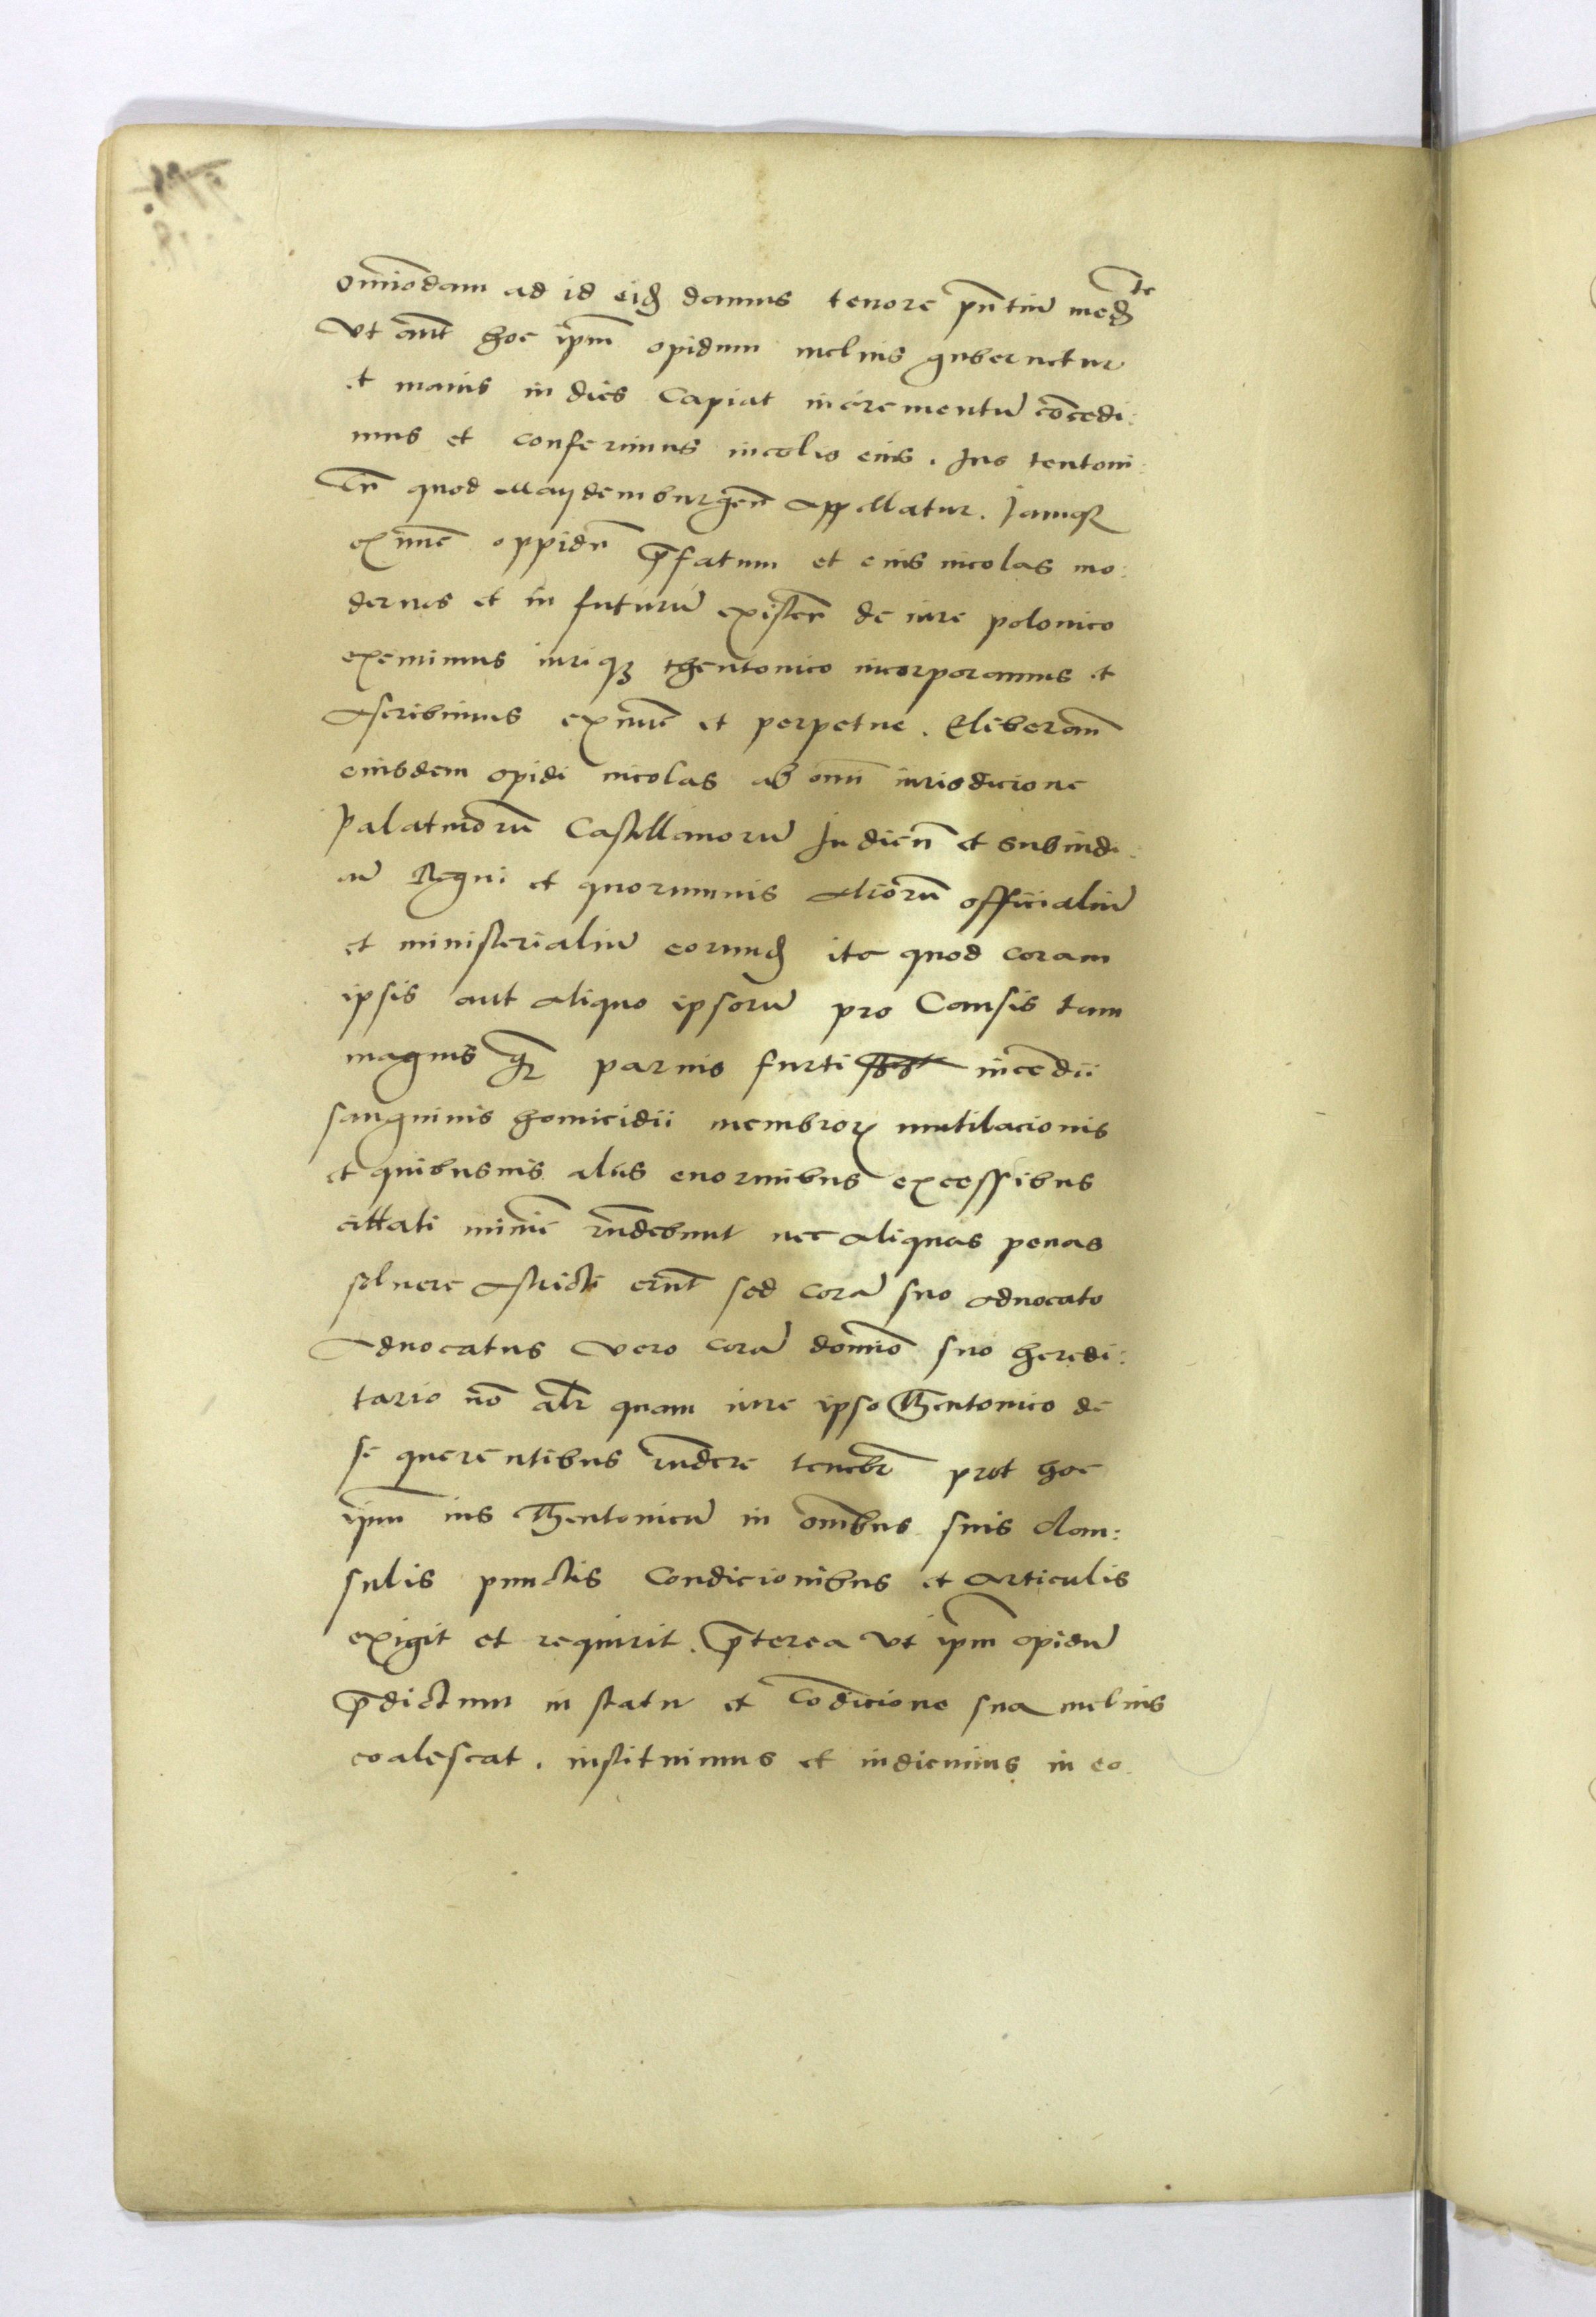 omiodam ad id eid damus tenore pntiū medte
Vt aut hoc ipm opidum melius gubernetur
et maius in dies Capiat incrementū cōcedi:
mus et conferimus incolis eius. Jus teutoni:
cū quod Maydemburgen̄ appellatur. Jamq
ex nūc oppidū p̄fatum et eius incolas mo:
dernos et in futurū existen̄ de iure polonico
eximimus iuriqꝫ theutonico incorporamus et
ascribimus ex nūc et perpetue. Eliberam̄
eiusdem opidi incolas ab omī iurisdicione
Palatinorū Castellanorū Judicū et subiudi:
cū Regni et quorumuis aliorū officialiū
et ministerialiū eorund ita quod coram
ipsis aut aliquo ipsorū pro Causis tam
magnis q̄ paruis furti incendii
sanguinis homicidii membroꝝ mutilacionis
et quibusuis aliis enormibus excessibus
cittati minīe rn̄debunt nec aliquas penas
soluere astricti erūt sed corā suo aduocato
Aduocatus vero corā domīo suo heredi:
tario nō alr quam iure ipso Theutonico de
se querentibus rn̄dere tenebr̄ prot hoc
ipm ius Theutonicū in omībus suis clau:
sulis punctis Condicionibus et articulis
exigit et requirit. p̄terea vt ipm opidū
p̄dictum in statu et Cōdicione sua melius
coalescat. instituimus et indicimus in eo